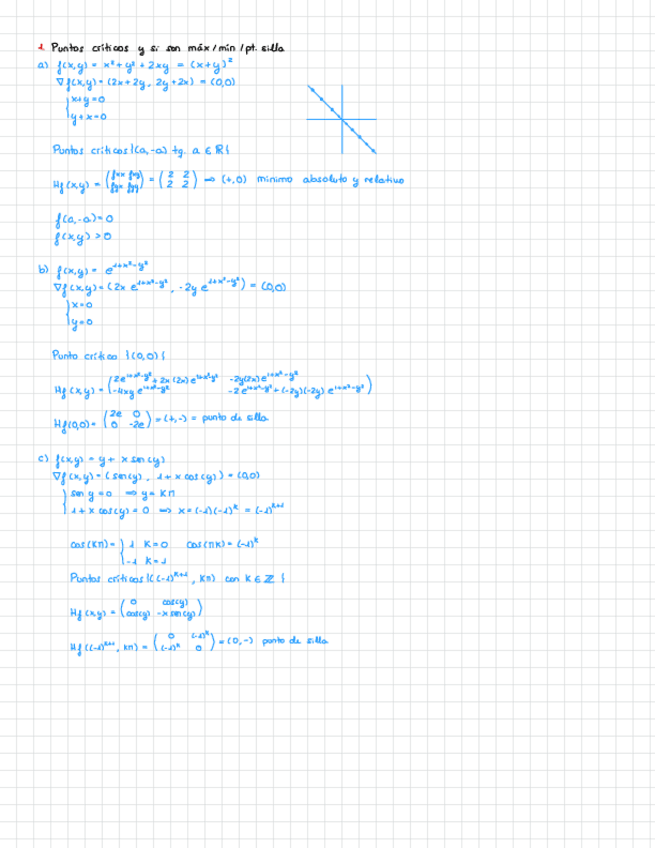 1. Puntos críticos y si son máx/mín/pt. silla
a) f(x,y) = x² + y² + 2xy = (x+y)²
∇f(x,y) = (2x+2y, 2y+2x) = (0,0)
{ x+y=0
y+x=0
Puntos críticos {(a,-a) tq. a ∈ ℝ}
Hf(x,y) = (fxx fxy / fyx fyy) = (2 2 / 2 2) ⇒ (+,0) mínimo absoluto y relativo
f(a,-a)=0
f(x,y) > 0
b) f(x,y) = e^(1+x²-y²)
∇f(x,y) = (2x e^(1+x²-y²), -2y e^(1+x²-y²)) = (0,0)
{ x=0
y=0
Punto crítico {(0,0)}
Hf(x,y) = (2e^(1+x²-y²) + 2x(2x)e^(1+x²-y²) -2y(2x)e^(1+x²-y²) / -4xy e^(1+x²-y²) -2e^(1+x²-y²) + (-2y)(-2y) e^(1+x²-y²))
Hf(0,0) = (2e 0 / 0 -2e) = (+,-) = punto de silla
c) f(x,y) = y + x sen(y)
∇f(x,y) = (sen(y), 1 + x cos(y)) = (0,0)
{ sen y = 0 ⇒ y = Kπ
1 + x cos(y) = 0 ⇒ x = (-1)(-1)^K = (-1)^(K+1)
cos(Kπ) = { 1 K=0 cos(πK) = (-1)^K
-1 K=1
Puntos críticos {((-1)^(K+1), Kπ) con K ∈ ℤ}
Hf(x,y) = (0 cos(y) / cos(y) -x sen(y))
Hf((-1)^(K+1), Kπ) = (0 (-1)^K / (-1)^K 0) = (0,-) punto de silla